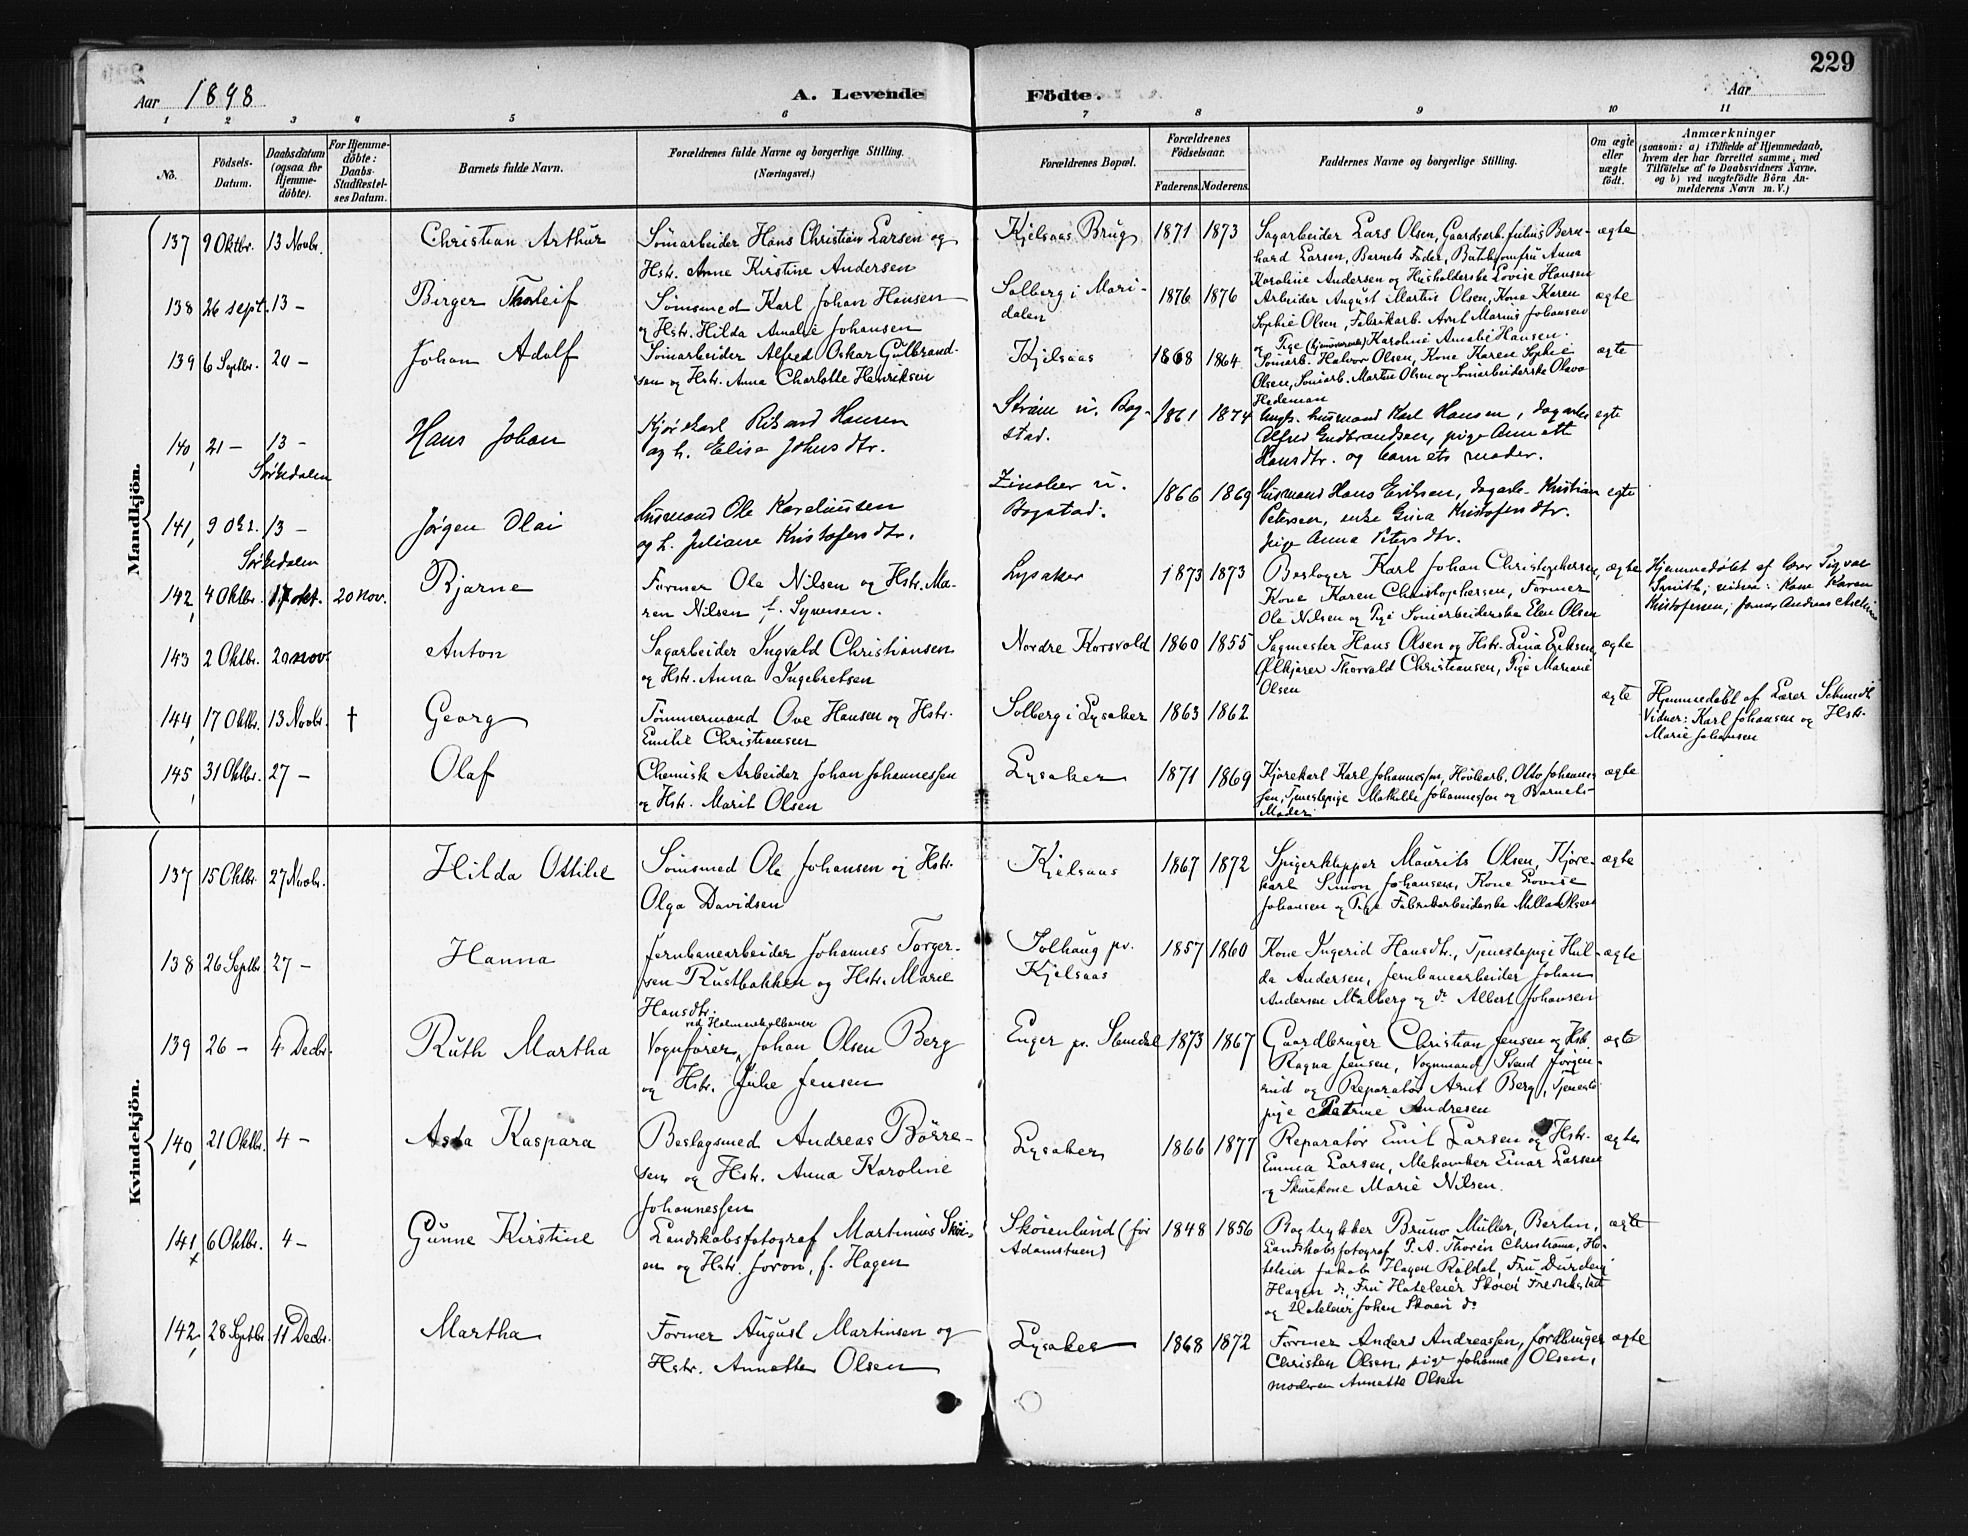 229
Aar 1898.
A. Levende Födte.
Aar
1 2 3 4 5 6 7 8 9 10 11
No.
Födsels-Datum.
Daabsdatum (ogsaa for Hjemme-döbte).
For Hjemme-döbte: Daabs-Stadfæstel-ses Datum.
Barnets fulde Navn.
Forældrenes fulde Navne og borgerlige Stilling.
(Næringsvei.)
Forældrenes Bopæl.
Forældrenes Födselsaar.
Faderens. Moderens.
Faddernes Navne og borgerlige Stilling.
Om ægte eller uægte födt.
Anmærkninger
(saasom: a) i Tilfælde af Hjemmedaab,
hvem der har forrettet samme, med
Tilföielse af to Daabsvidners Navne.
og b) ved uægtefödte Börn An-
melderens Navn m. V.)
Mandkjön.
137 9 Oktbr. 13 Novbr. Christian Arthur
Sømarbeider Hans Christian Larsen og
Hstr. Anne Kirstine Andersen
Kjelsaas Brug 1871 1873
Sagarbeider Lars Olsen, Gaardsarb. Julius Bern-
hard Larsen, Barnets Fader, Butikjomfru Anna
Karoline Andersen og Husholderske Lovise Hansen
ægte
138 26 sept. 13 – Birger Thorleif
Sømsmed Karl Johan Hansen
og Hstr. Hilda Amalie Johansen
Solberg i Mari-
dalen 1876 1876
Arbeider August Martin Olsen, Kone Karen
Sophie Olsen, Fabrikarb. Arnt Marius Johansen
og Pige (hjemmeværende) Karoline Amalie Hansen.
ægte
139 6 Septbr. 20 – Johan Adolf
Sømarbeider Alfred Oskar Gulbrand-
sen og Hstr. Anna Charlotte Henriksen
Kjelsaas 1868 1864
Sømarb. Halvor Olsen, Kone Karen Sophie
Olsen, Sømarb. Martin Olsen og Sømarbeiderske Olava
Hedeman
ægte
140, 21 – 13 – Sørkedalen Hans Johan
Kjørekarl Rikard Hansen
og h. Elisa Johnsdtr.
Strøm u. Bog-
stad. 1861 1874
Ungk. husmand Karl Hansen, dagarb.
Alfred Gudbrandsen, pige Annett
Hansdtr. og barnets moder.
egte
141, 9 okt. 13 – Sørkedalen Jørgen Olai
Husmand Ole Kareliussen
og h. Juliane Kristofersdtr.
Zinober u.
Bogstad. 1866 1869
Husmand Hans Eriksen, dagarb. Kristian
Petersen, enke Gina Kristofersdtr.
pige Anna Petersdtr.
egte
142, 4 Oktbr. 17 okt. 20 nov. Bjarne
Former Ole Nilsen og Hstr. Ma-
ren Nilsen f. Syversen.
Lysaker 1873 1873
Beslager Karl Johan Christophersen,
Kone Karen Christophersen, Former
Ole Nilsen og Pige Sømarbeiderske Elen Olsen
ægte
Hjemmedøbt af lærer Sigval
Smith; vidner: Kone Karen
Kristofersen; former Andreas
143 2 Oktbr. 20 nov. Anton
Sagarbeider Ingvald Christiansen
og Hstr. Anna Ingebretsen
Nordre Korsvold 1860 1855
Sagmester Hans Olsen og Hstr. Lina Eriksen,
Ølkjører Thorvald Christiansen, Pige Mariane
Olsen
ægte
144, 17 Oktbr. 13 Novbr. † Georg
Tømmermand Ove Hansen og Hstr.
Emilie Christiansen
Solberg i Lysaker 1863 1862
ægte
Hjemmedøbt af Lærer Schmidt
Vidner: Karl Johansen og Hstr.
Marie Johansen
145, 31 Oktbr. 27 – Olaf
Chemisk Arbeider Johan Johannessen
og Hstr. Marit Olsen
Lysaker 1871 1869
Kjørekarl Karl Johannessen, Høvlearb. Otto Johannes-
sen, Tjenestepige Mathilde Johannessen og Barnets
Moder
ægte
Kvindekjön.
137 15 Oktbr. 27 Novbr. Hilda Ottilie
Sømsmed Ole Johansen og Hstr.
Olga Davidsen
Kjelsaas 1867 1872
Spigerklipper Maurits Olsen, Kjøre-
karl Simon Johansen, Kone Lovise
Johansen og Pige Fabrikarbeiderske Milla Olsen
ægte
138 26 Septbr 27 – Hanna
Jernbanearbeider Johannes Torger-
sen Rustbakken og Hstr. Marie
Hansdtr.
Solhaug pr.
Kjelsaas 1857 1860
Kone Ingerid Hansdtr., Tjenestepige Hil-
da Andersen, Jernbanearbeider Johan
Andersen Malberg og do Albert Johansen
ægte
139 26 – 4 Decbr. Ruth Martha
ved Holmenkolbanen
Vognfører, Johan Olsen Berg
og Hstr. Julie Jensen
Enger pr. Slemdal 1873 1867
Gaardbruger Christian Jensen og Hst.
Ragna Jensen, Vognmand Svend Jørgen-
rud og Reparatør Arnt Berg, Tjeneste
pige Petrine Andresen
ægte
140, 21 Oktbr. 4 – Asta Kaspara
Beslagsmed Andreas Børre-
sen og Hstr. Anna Karoline
Johannessen
Lysaker 1866 1877
Reparatør Emil Larsen og Hstr.
Emma Larsen, Mekaniker Einar Larsen
og Skurekone Marie Nilsen.
ægte
141 x 6 Oktbr. 4 – Gunne Kirstine
Landskabsfotograf Martinius Skøi-
en og Hstr. Joron, f. Hagen
Skøienlund (før
Adamstuen) 1848 1856
Bogtrykker Bruno Müller, Berlin,
Landskabsfotograf P. A. Thorén Christiania, Ho-
teleier Jakob Hagen Røldal, Frü Durdei
Hagen do, Frü Hoteleier Skøien Fredrikstad
og Hoteleier Johan Skøien do
ægte
142, 28 Septbr. 11 Decbr. Martha
Former August Martinsen og
Hstr. Annette Olsen
Lysaker 1868 1872
Former Anders Andreassen, jordbruger
Christen Olsen, pige Johanne Olsen,
moderen Annette Olsen
ægte